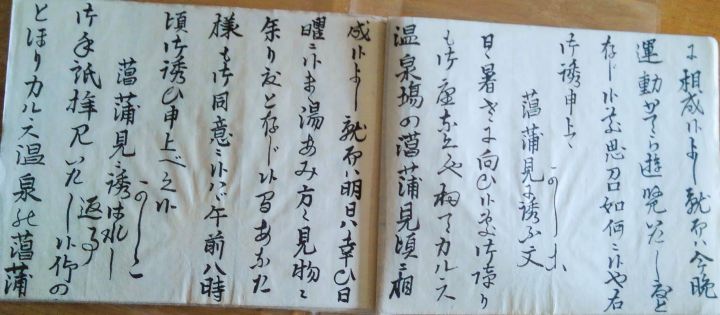 に相成候よし就而ハ今晩
運動かてら遊覧いたし度と
存じ候が思召如何ニ候や右
御誘申上候
かしこ
菖蒲見に誘ふ文
日々暑さに向ひ候処御障り
も御座なく候や扨てカルヽス
温泉場の菖蒲見頃ニ相
成候よし就而ハ明日ハ幸ひ日
曜ニ候ま湯あみ方々見物ニ
参り度と存じ候間あなた
様も御同意ニ候ハヾ午前八時
頃御誘ひ申上べく候
かしこ
菖蒲見ニ誘はれし
返事
御手紙拝見いたし候仰の
とほりカルヽス温泉の菖蒲